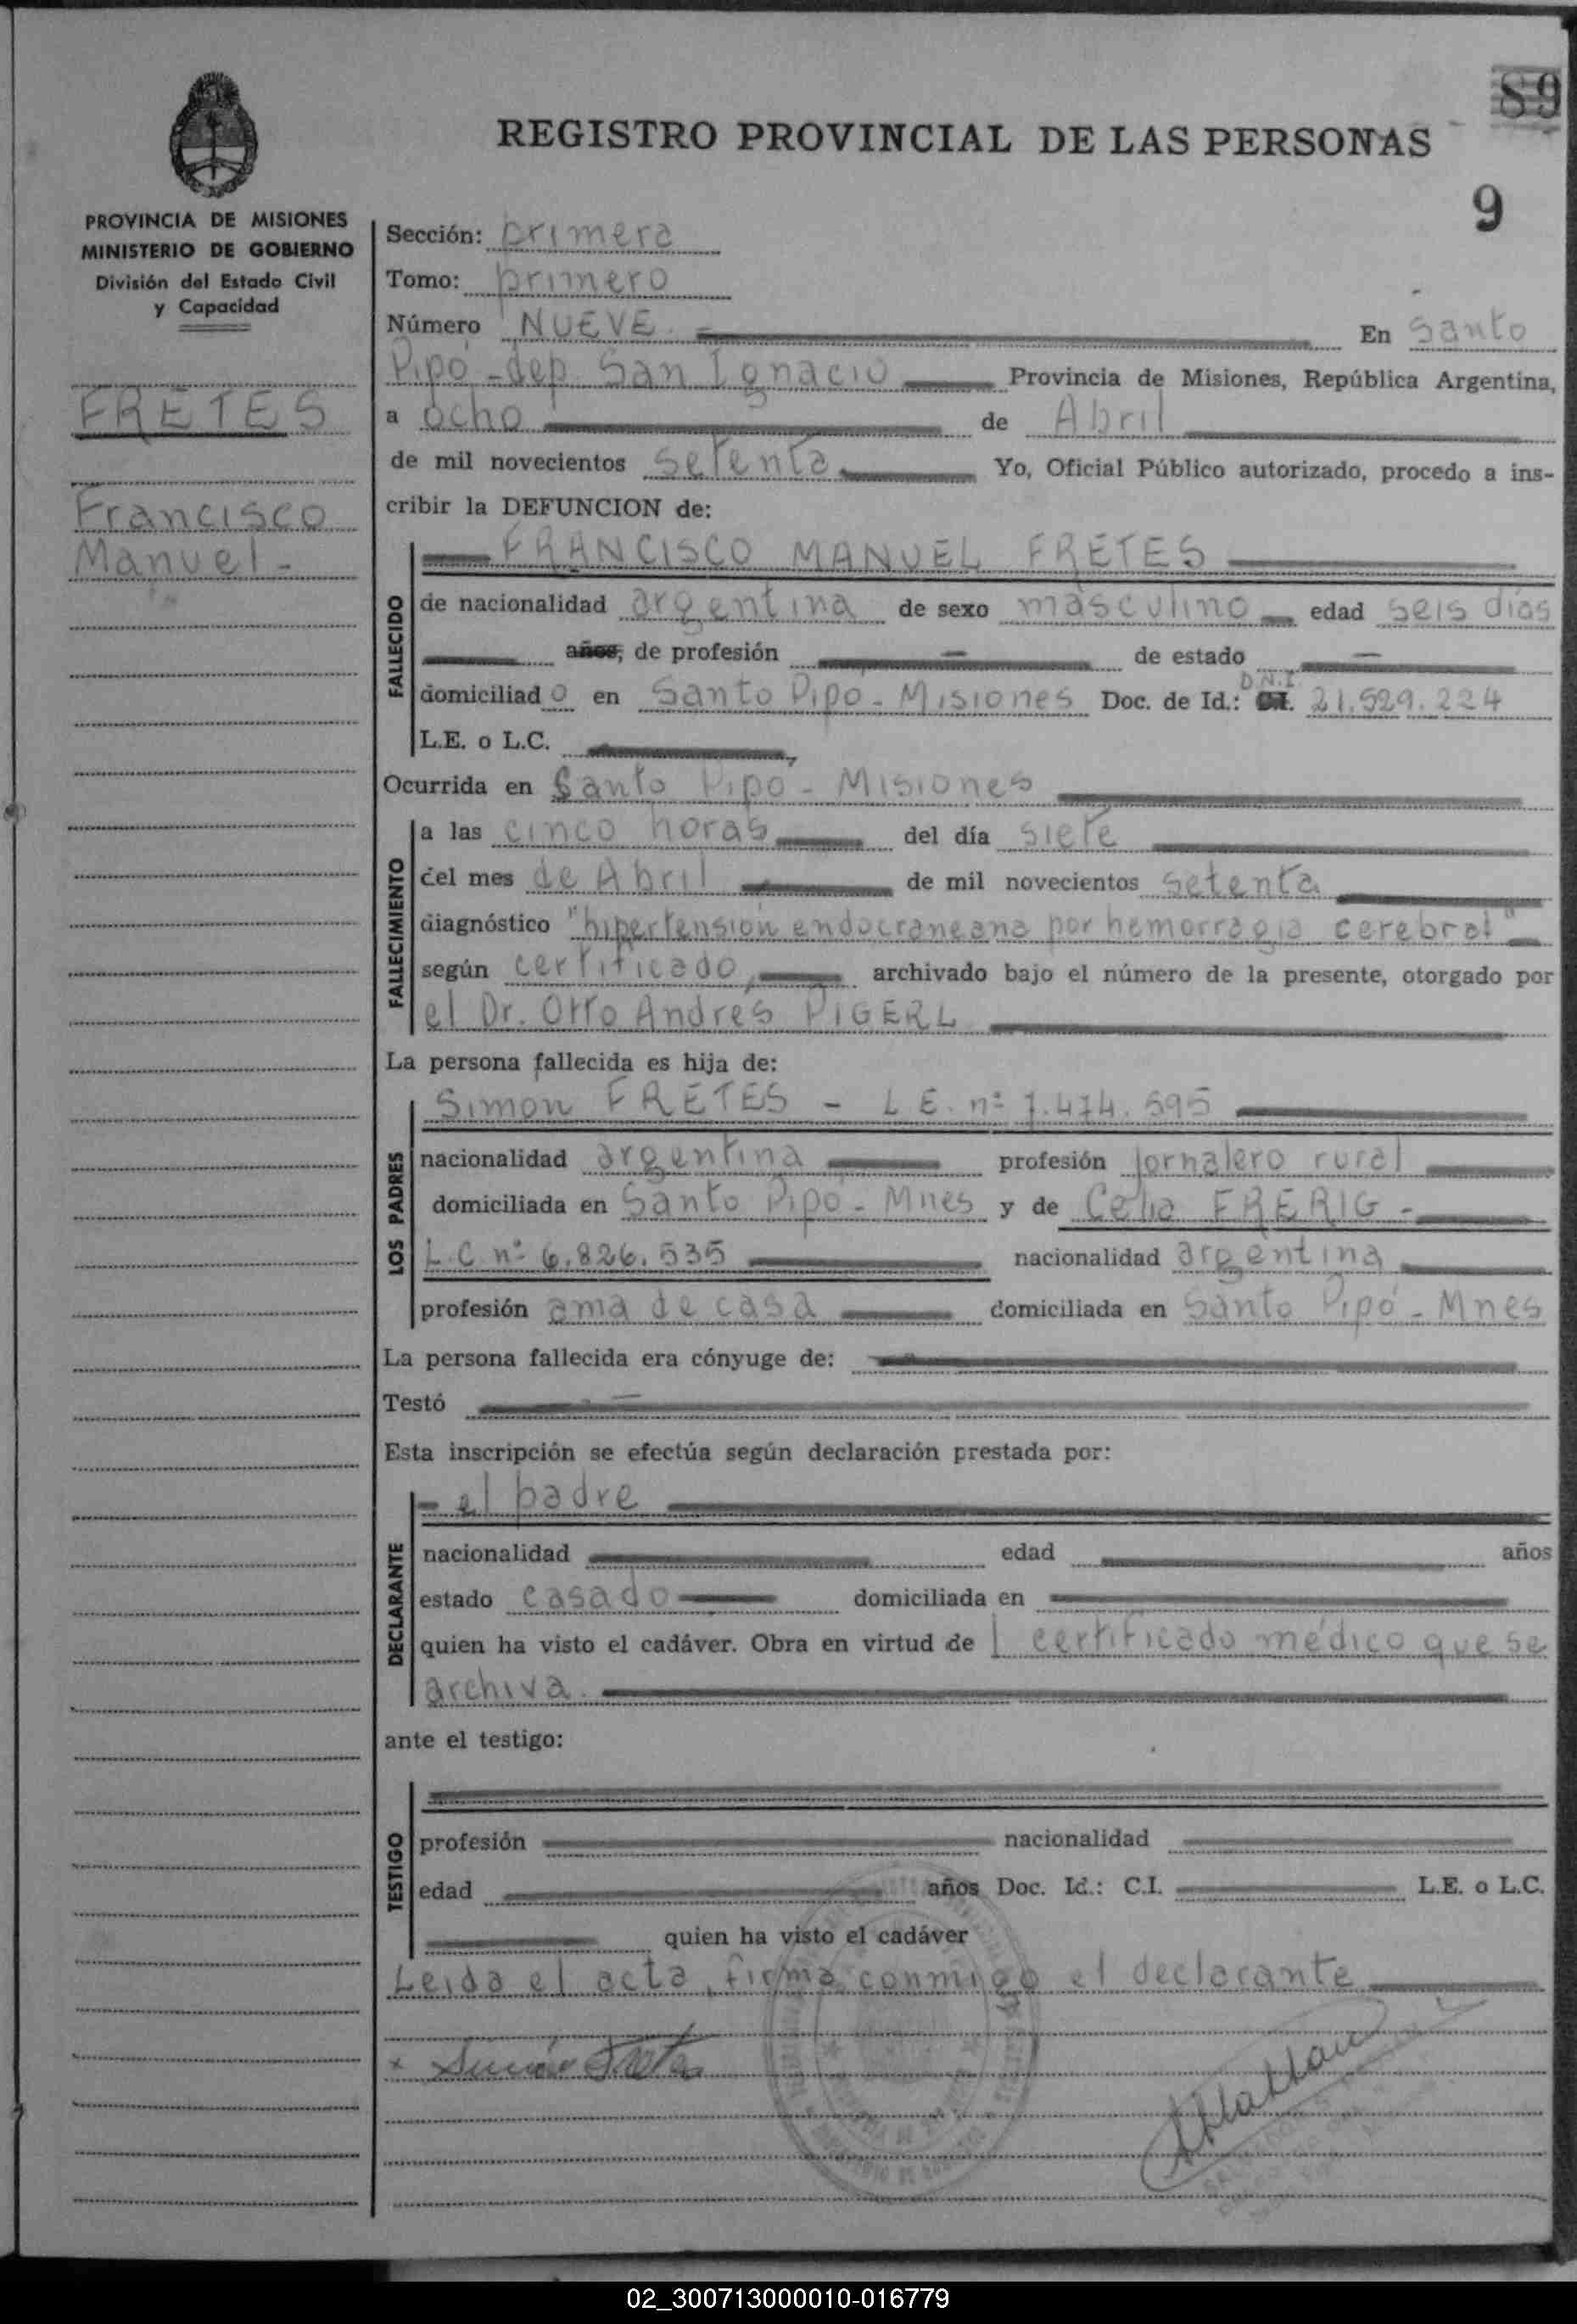 89
REGISTRO PROVINCIAL DE LAS PERSONAS
9
PROVINCIA DE MISIONES
MINISTERIO DE GOBIERNO
División del Estado Civil
y Capacidad
FRETES
Francisco
Manuel -
Sección: primera
Tomo: primero
Número NUEVE. En Santo
Pipó - dep. San Ignacio Provincia de Misiones, República Argentina,
a ocho de Abril
de mil novecientos setenta Yo, Oficial Público autorizado, procedo a ins-
cribir la DEFUNCION de:
FALLECIDO
FRANCISCO MANUEL FRETES
de nacionalidad argentina de sexo masculino edad seis días
años, de profesión — de estado —
domiciliado en Santo Pipó - Misiones Doc. de Id.: D.N.I. 21.529.224
L.E. o L.C.
Ocurrida en Santo Pipó - Misiones
FALLECIMIENTO
a las cinco horas del día siete
del mes de Abril de mil novecientos setenta
diagnóstico "hipertensión endocraneana por hemorragia cerebral"
según certificado, archivado bajo el número de la presente, otorgado por
el Dr. Otto Andres PIGERL
La persona fallecida es hija de:
LOS PADRES
Simon FRETES - L.E. nº 7.474.595
nacionalidad argentina profesión jornalero rural
domiciliada en Santo Pipó - Mnes y de Celia FRERIG -
L.C. nº 6.826.535 nacionalidad argentina
profesión ama de casa domiciliada en Santo Pipó - Mnes
La persona fallecida era cónyuge de:
Testó
Esta inscripción se efectúa según declaración prestada por:
DECLARANTE
- el padre
nacionalidad edad años
estado casado domiciliada en
quien ha visto el cadáver. Obra en virtud de 1 certificado médico que se
archiva.
ante el testigo:
TESTIGO
profesión nacionalidad
edad años Doc. Id.: C.I. L.E. o L.C.
quien ha visto el cadáver
Leida el acta, firma conmigo el declarante
x Simón Fretes
02_300713000010-016779